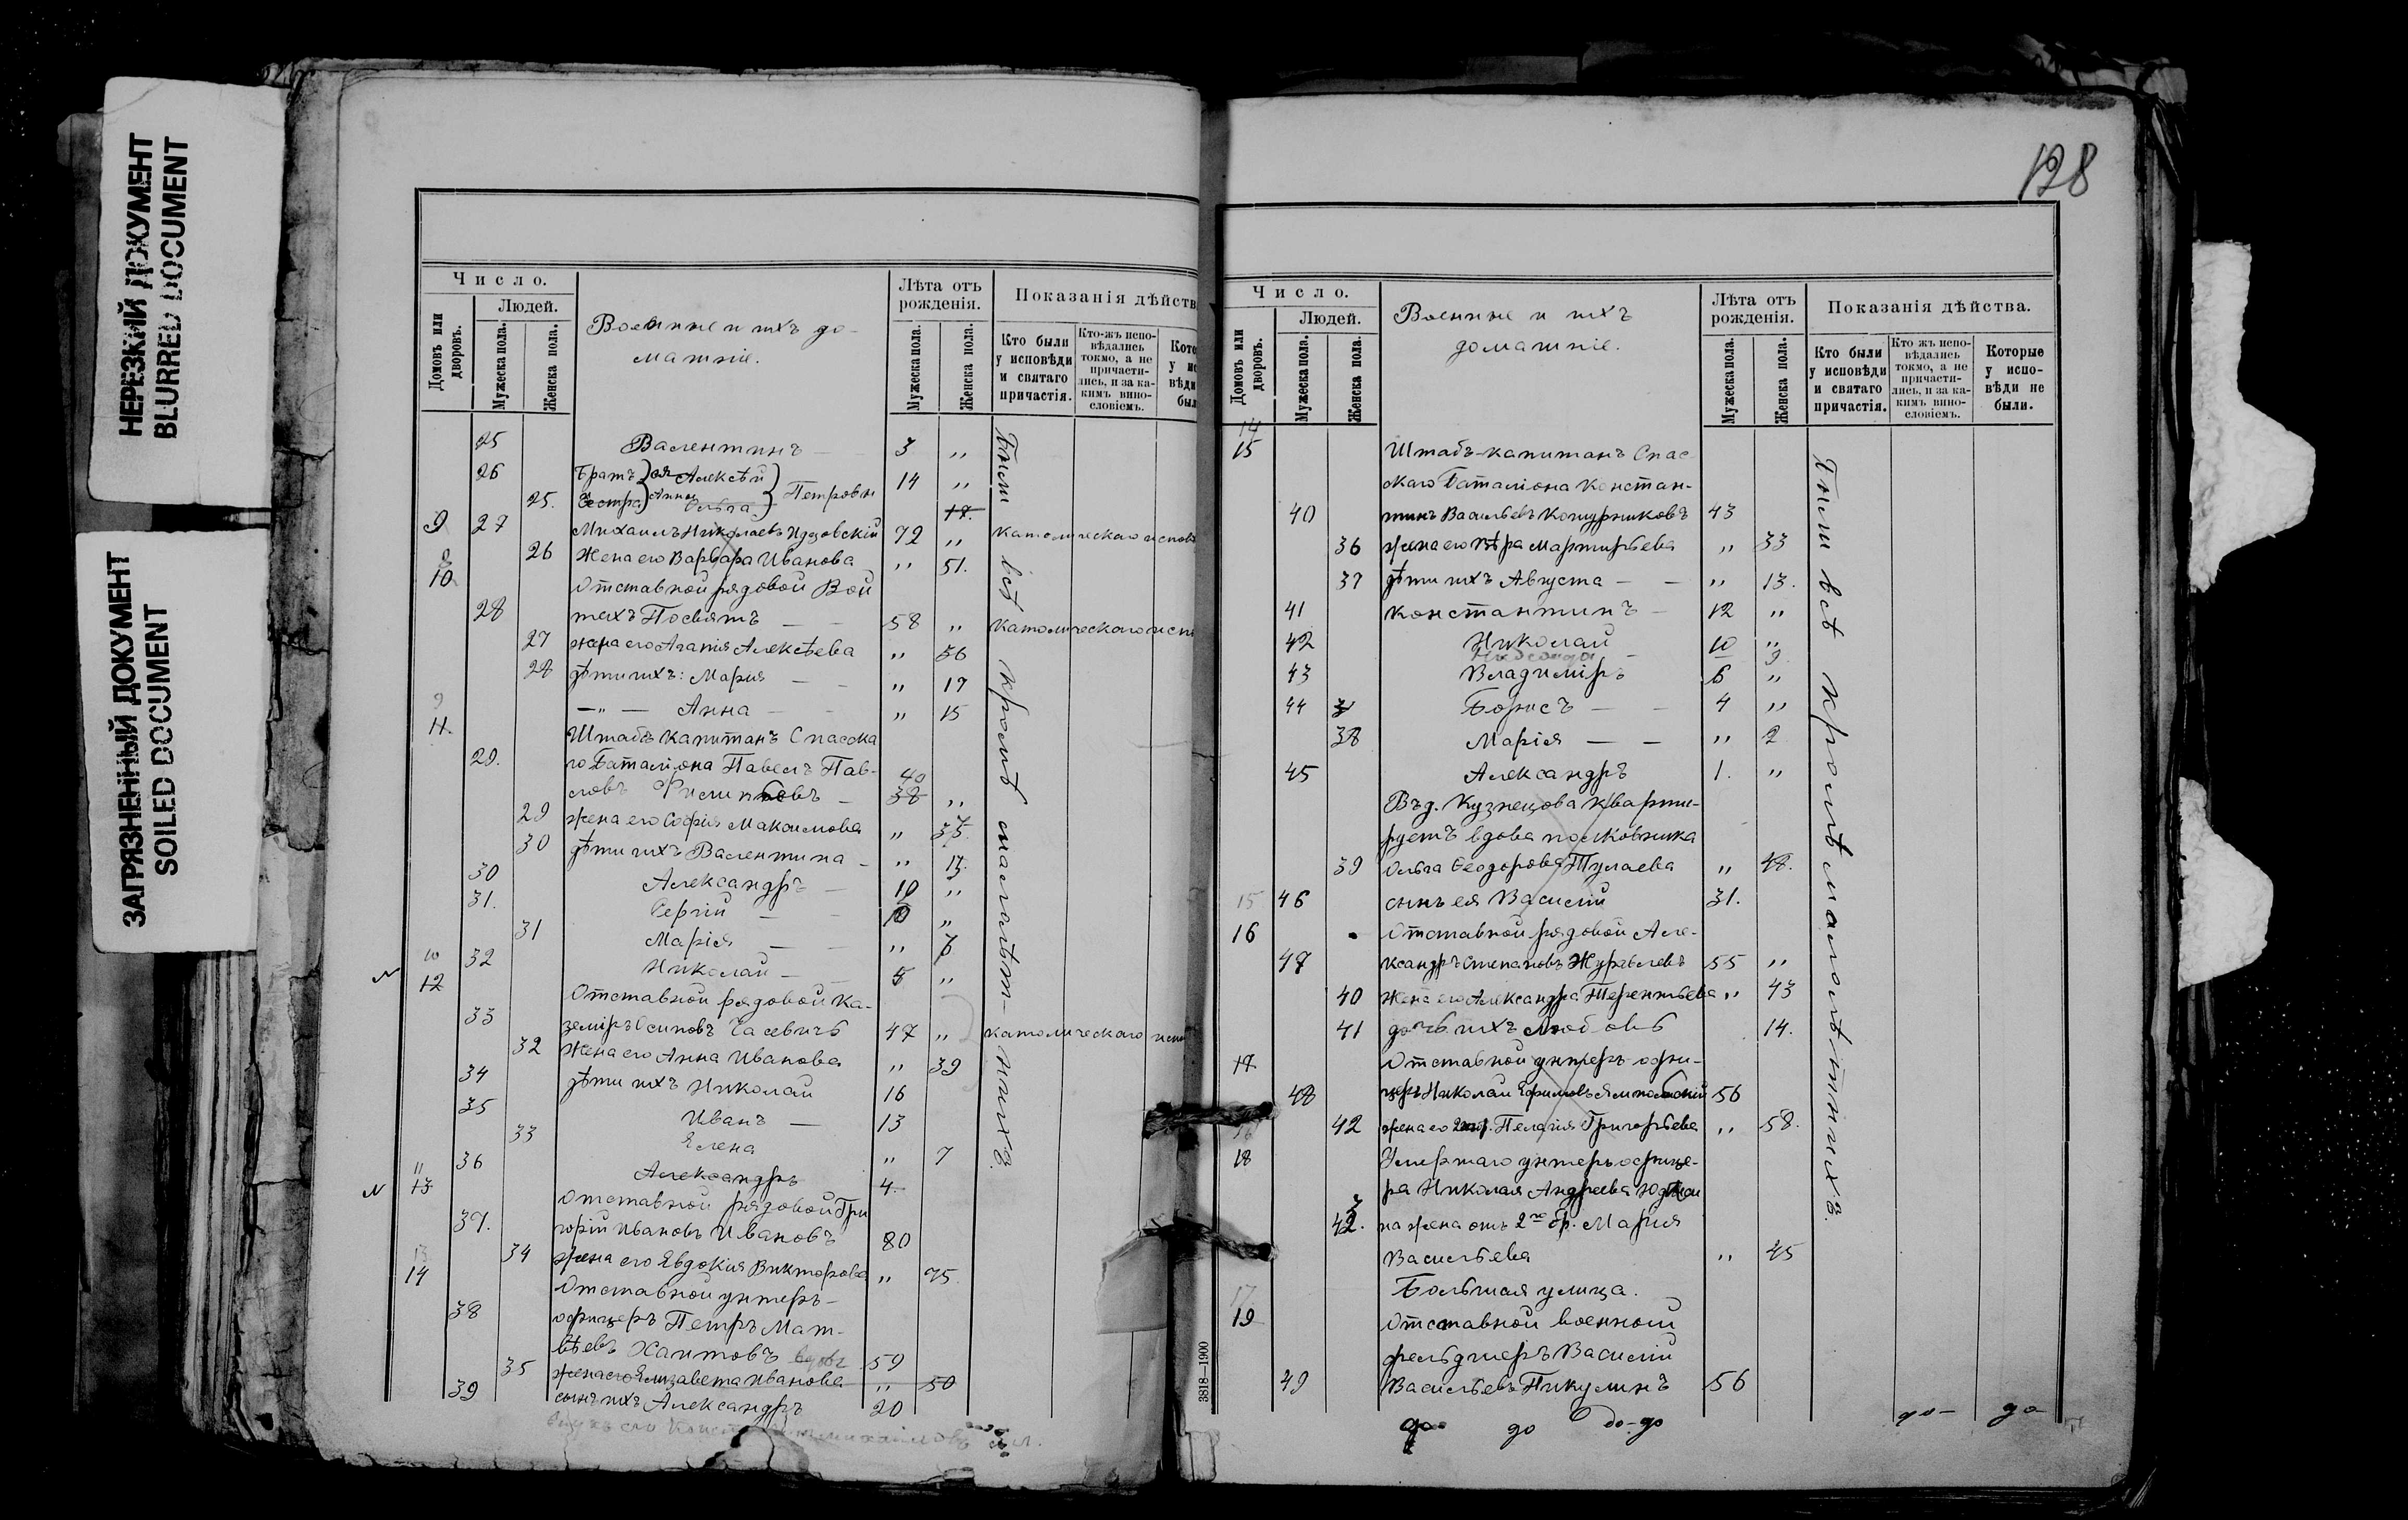 НЕРЕЗКИЙ ДОКУМЕНТ
BLURRED DOCUMENT
ЗАГРЯЗНЕННЫЙ ДОКУМЕНТ
SOILED DOCUMENT
Число.
Людей.
Домовъ или дворовъ.
Мужеска пола.
Женска пола.
Военные и ихъ до-
машніе.
Лѣта отъ рожденія.
Мужеска пола.
Женска пола.
Показанія дѣйств
Кто были у исповѣди и святаго причастія.
Кто-жъ испо-вѣдались токмо, а не причасти-лись, и за ка-кимъ вино-словіемъ.
Кото у ис вѣди был
Были всѣ кромѣ малолѣт-нихъ.
25 Валентинъ — 3 „
26 Братъ ея Алексѣй 14 „
25. Сестра Анны Ольга Петровы 17.
9 27 Михаилъ Николаевъ 72 „ католическаго испов
26 Жена его Варвара Иванова „ 51.
8
10 Отставной рядовой Вой
28 техъ Посвятъ — — 58 „ католическаго исп
27 жена его Агапія Алексѣева „ 56
28 дѣти ихъ: Марія — — „ 17
9
— „ — Анна — — „ 15
11. Штабъ Капитанъ Спасска
29. го Баталіона Павелъ Пав- 40
ловъ Филипповъ — 38 „
29 жена его Софія Максимова „ 37
30 дѣти ихъ Валентина — „ 13
30 Александръ — 12 „
31. Сергій — — 10 „
31 Марія — — „ 7
10 32 Николай — 5 „
N 12 Отставной рядовой Ка-
33 земіръ Осиповъ Часевичъ 47 „ католическаго испо
32 Жена его Анна Иванова „ 39
34 дѣти ихъ Николай 16
35 Иванъ — 13
33 Елена „ 7
11 36 Александръ 4.
N 13 Отставной рядовой Гри
37. горій Ивановъ Ивановъ 80
34 жена его Евдокія Викторова „ 75.
14 Отставной унтеръ-
38 офицеръ Петръ Мат-
вѣевъ Хаитовъ вдовъ 59
35 жена его Елизавета Иванова „ 50
39 сынъ ихъ Александръ 20
128
Число.
Людей.
Домовъ или дворовъ.
Мужеска пола.
Женска пола.
Военные и ихъ
домашніе.
Лѣта отъ рожденія.
Мужеска пола.
Женска пола.
Показанія дѣйства.
Кто были у исповѣди и святаго причастія.
Кто жъ испо-вѣдались токмо, а не причасти-лись, и за ка-кимъ вино-словіемъ.
Которые у испо-вѣди не были.
Были всѣ кромѣ малолѣтнихъ.
14
15 Штабъ-капитанъ Спас-
скаго Баталіона Констан-
40 тинъ Васильевъ Кошурниковъ 43
36 жена его Вѣра Мартирьева „ 33
37 дѣти ихъ Августа — — „ 13.
41 Константинъ — 12 „
42 Николай 10 „
9
43 Владиміръ 6 „
44 Борисъ — — 4 „
38 Марія — — „ 2
45 Александръ 1. „
Въ д. Кузнецова кварти-
руетъ вдова полковника
39 Ольга Ѳеодорова Тулаева „ 48.
15 46 сынъ ея Василій 31.
16 Отставной рядовой Але-
47 ксандръ Степановъ Журавлевъ 55 „
40 жена его Александра Терентьева „ 43
41 дочь ихъ Любовь 14.
17 Отставной унтеръ-офи-
48 церъ Николай Ефимовъ 56
42 жена его Пелагія Григорьева „ 58.
16
18 Умершаго унтеръ офице-
ра Николая Андреева Юдтеи
42. на жена отъ 2го бр. Марія
Васильева „ 45
Большая улица.
17
19 Отставной военной
фельдшеръ Василій
49 Васильевъ Пикулинъ 56
до до до до до до
3818—1900